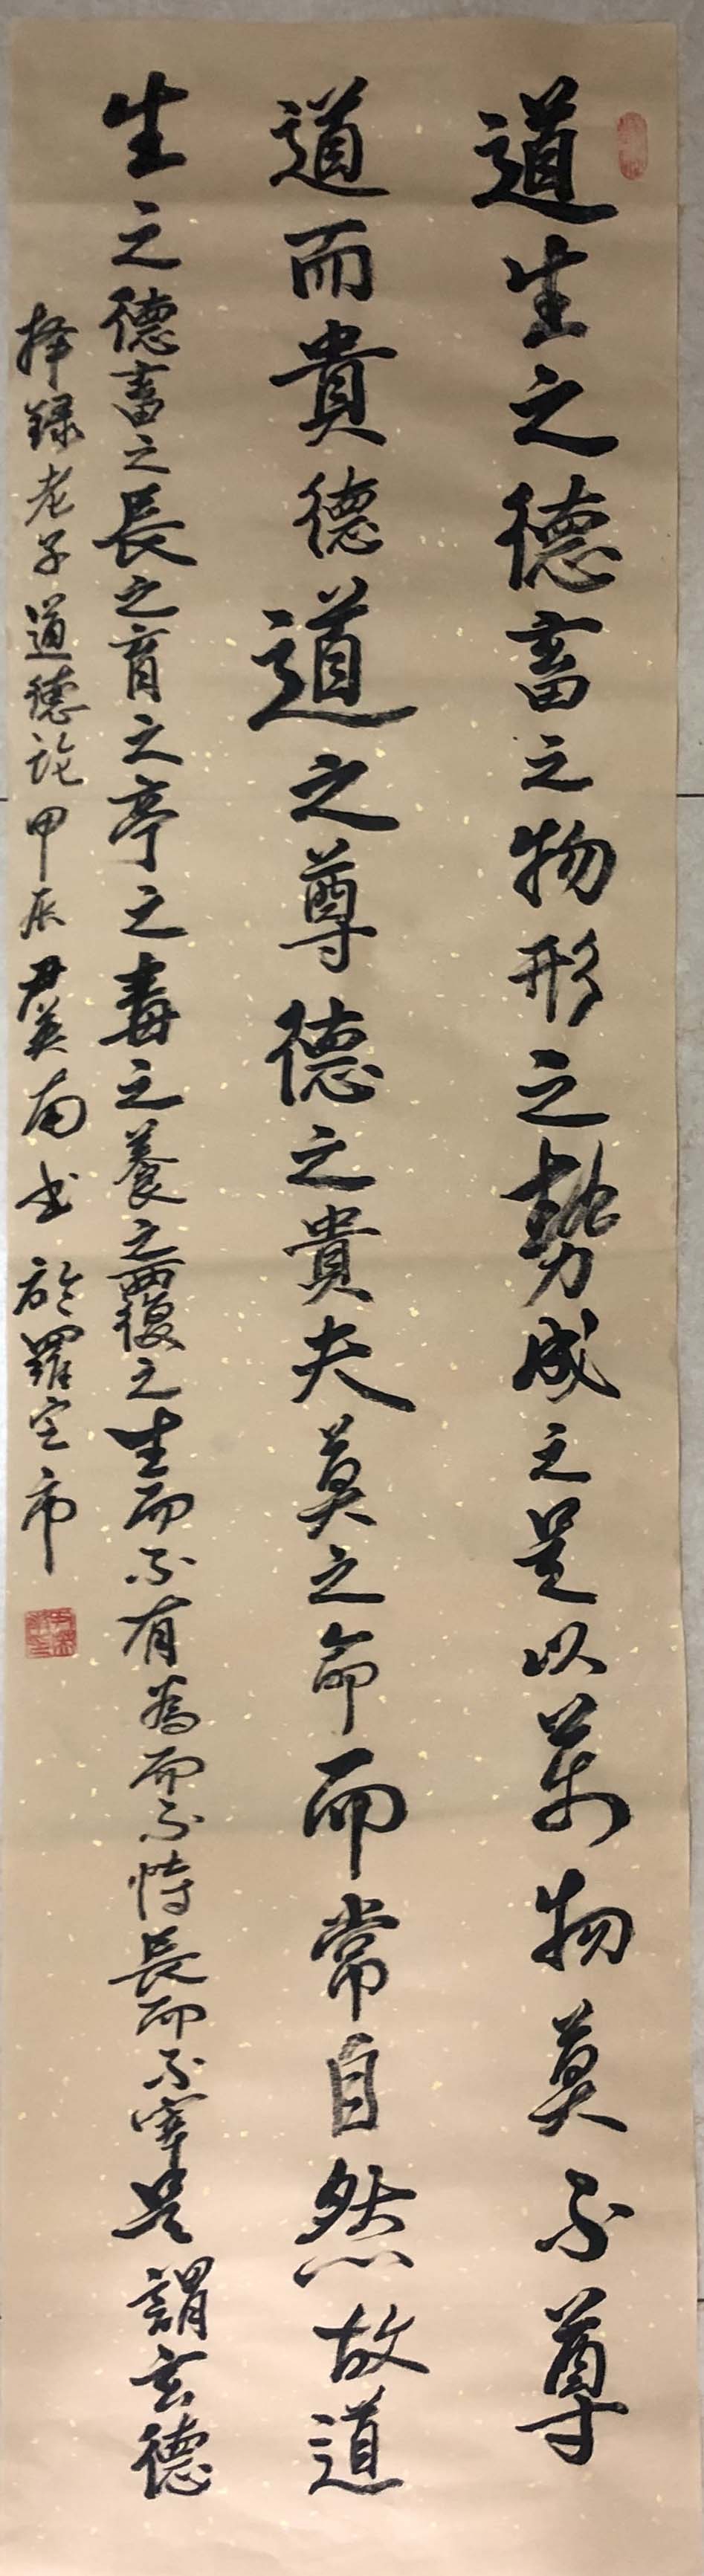 道生之德畜之物形之勢成之是以萬物莫不尊
道而貴德道之尊德之貴夫莫之命而常自然故道
生之德畜之長之育之亭之毒之養之覆之生而不有為而不恃長而不宰是謂玄德
择録老子道德論甲辰尹英南书於羅定市